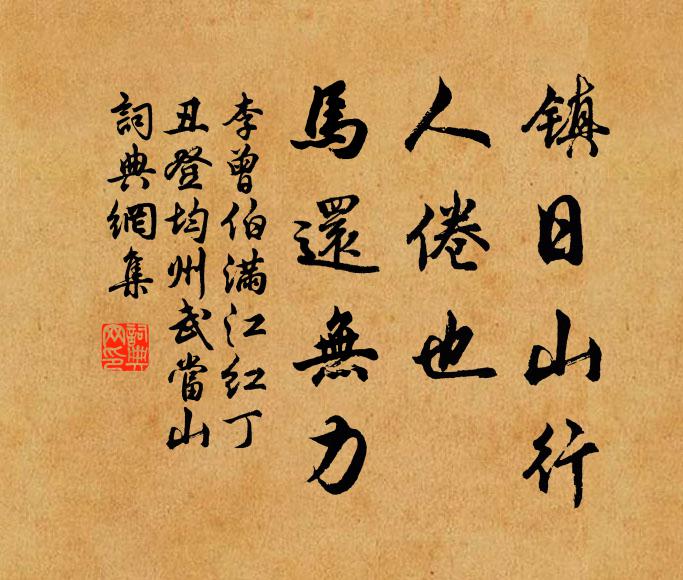 鎮日山行
人倦也
馬還無力
李曾伯滿江红丁
丑登均州武當山
詞典網集
詞典
网印